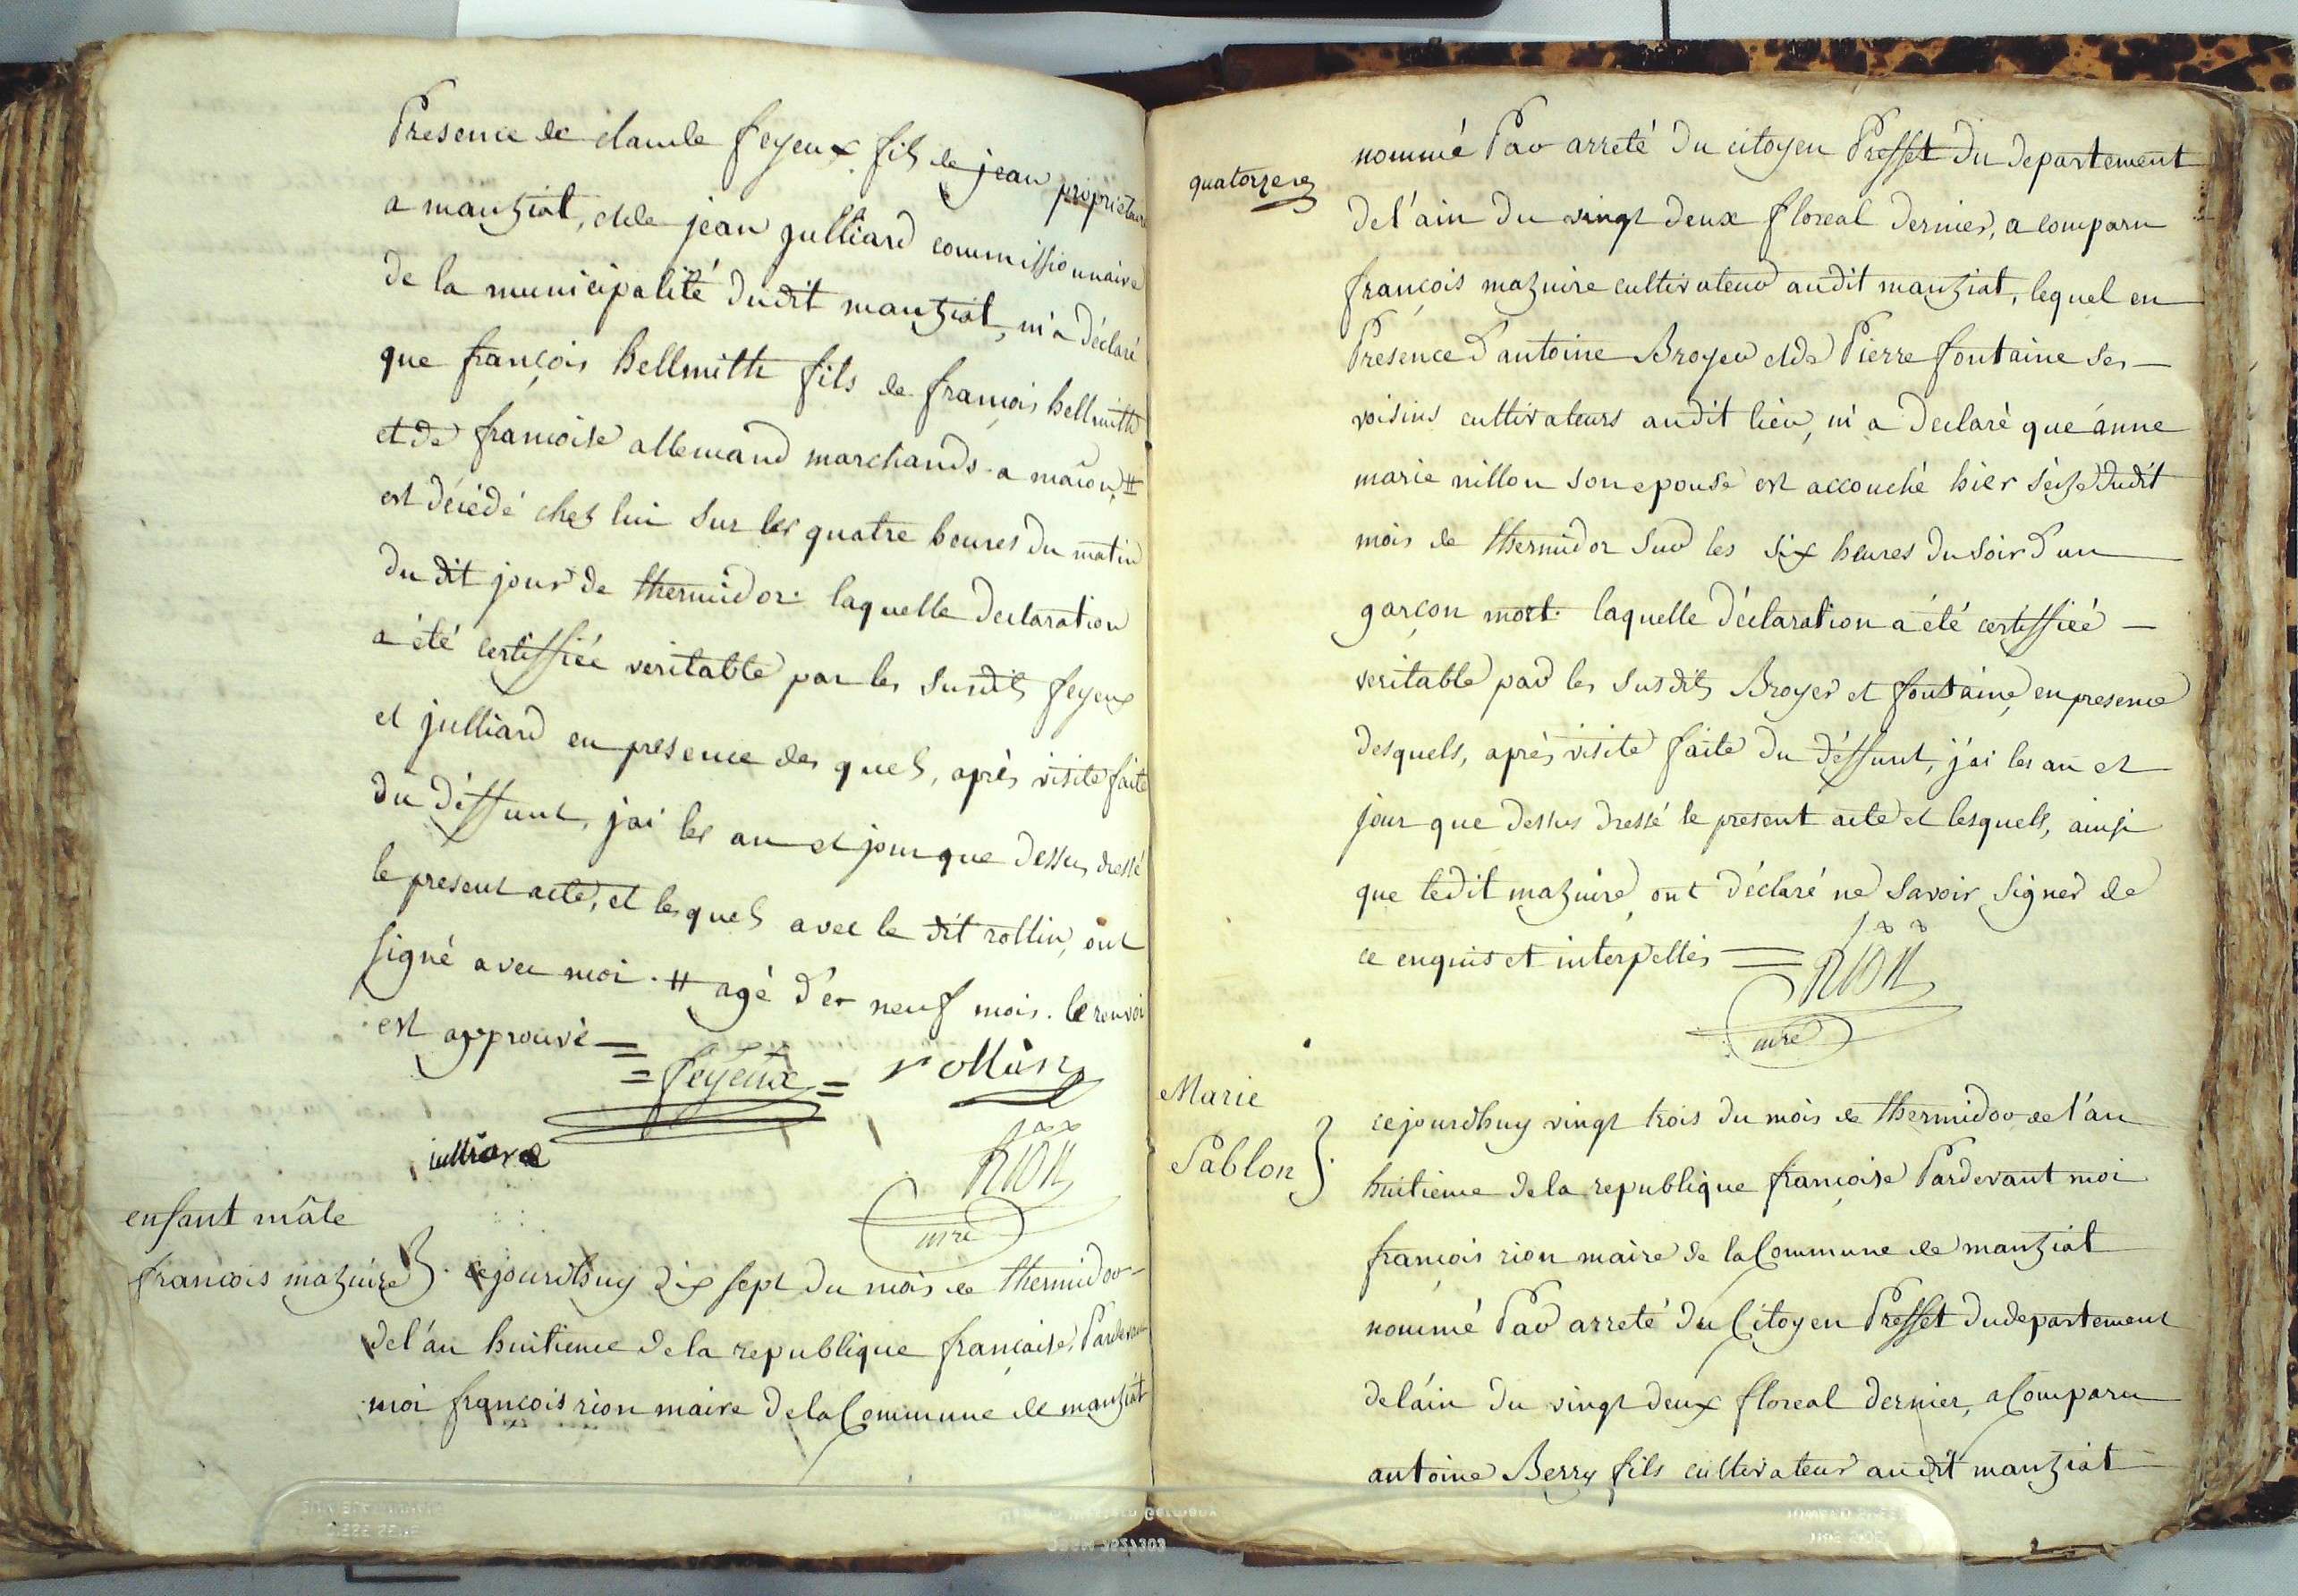 Presence de claude feyeux fils de jean proprietaire
a manziat, et de jean julliard commissionnaire
de la municipalité dudit manziat, m'a déclaré
que françois hellmith fils de françois hellmith
et de francoise allemand marchands a macon, #
est décédé chez lui sur les quatre heures du matin
du dit jour de thermidor. laquelle declaration
a été certiffiée veritable par les susdits feyeux
et julliard en presence des quels, après visite faite
du déffunt, j'ai les an et jour que dessus dressé
le present acte, et lesquels avec le dit rollin, ont
signé avec moi. # agé d'ex neuf mois. le renvoi
est approuvé =
= feyeux = rollin
julliard
rion
mre
enfant mâle
francois mazuire }. cejourdhuy dix sept du mois de thermidor
de l'an huitieme de la republique francaise, Pardevant
moi francois rion maire de la Commune de manziat
quatorze
nommé Par arreté du citoyen Presset du departement
de l'ain du vingt deux floreal dernier, a comparu
françois mazuire cultivateur audit manziat, lequel en
Presence d'antoine Broyer et de Pierre fontaine ses
voisins cultivateurs audit lieu, m'a declaré que anne
marie nillon son epouse est accouché hier seize dudit
mois de thermidor sur les six heures du soir d'un
garçon mort. laquelle déclaration a été certiffiéé
veritable par les susdits Broyer et fontaine, en presence
desquels, après visite faite du déffunt, j'ai les an et
jour que dessus dressé le present acte et lesquels, ainsi
que ledit mazuire, ont déclaré ne savoir signer de
ce enquis et interpellés =
rion
mre
Marie
Pablon }.
cejourdhuy vingt trois du mois de thermidor de l'an
huitieme de la republique françoise Pardevant moi
francois rion maire de la Commune de manziat
nommé Par arreté du Citoyen Presset du departement
de l'ain du vingt deux floreal dernier, a Comparu
antoine Berry fils cultivateur audit manziat